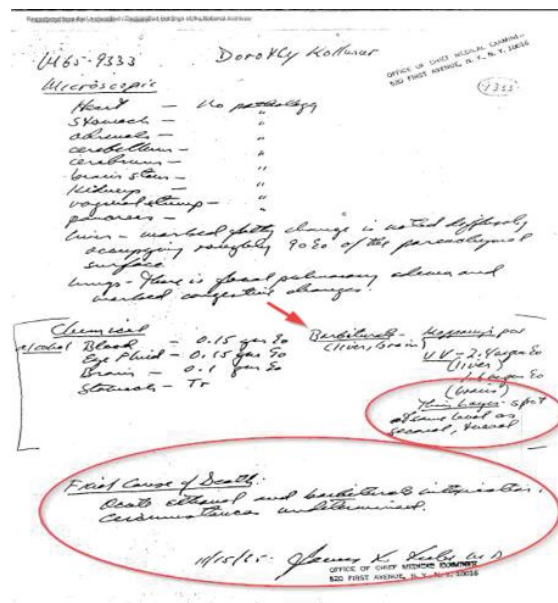 Reproduced from the Unclassified / Declassified Holdings of the National Archives
M65-9333 Dorothy Kollmar
OFFICE OF CHIEF MEDICAL EXAMIN-
520 FIRST AVENUE, N. Y., N. Y. 10016
9333
Microscopic
Heart — No pathology
Stomach — "
adrenals — "
cerebellum — "
cerebrum — "
brain stem — "
Kidneys — "
vaginal stump — "
pancreas — "
Liver - marked fatty change is noted diffusely
occupying roughly 90% of the parenchymal
surface.
Lungs - There is focal pulmonary edema and
marked congestive changes.
Chemical
alcohol Blood — 0.15 gm %
Eye Fluid — 0.15 gm %
Brain — 0.1 gm %
Stomach — Tr
Barbiturate -
(liver, brain)
UV - 2.4 mgm %
(liver)
1.6 mgm %
(brain)
Thin layer - spot
at same level as
seconal, tuinal
Final Cause of Death:
Acute ethanol and barbiturate intoxication,
circumstances undetermined.
11/15/65 James L. Luke M D
OFFICE OF CHIEF MEDICAL EXAMINER
520 FIRST AVENUE, N. Y., N. Y. 10016